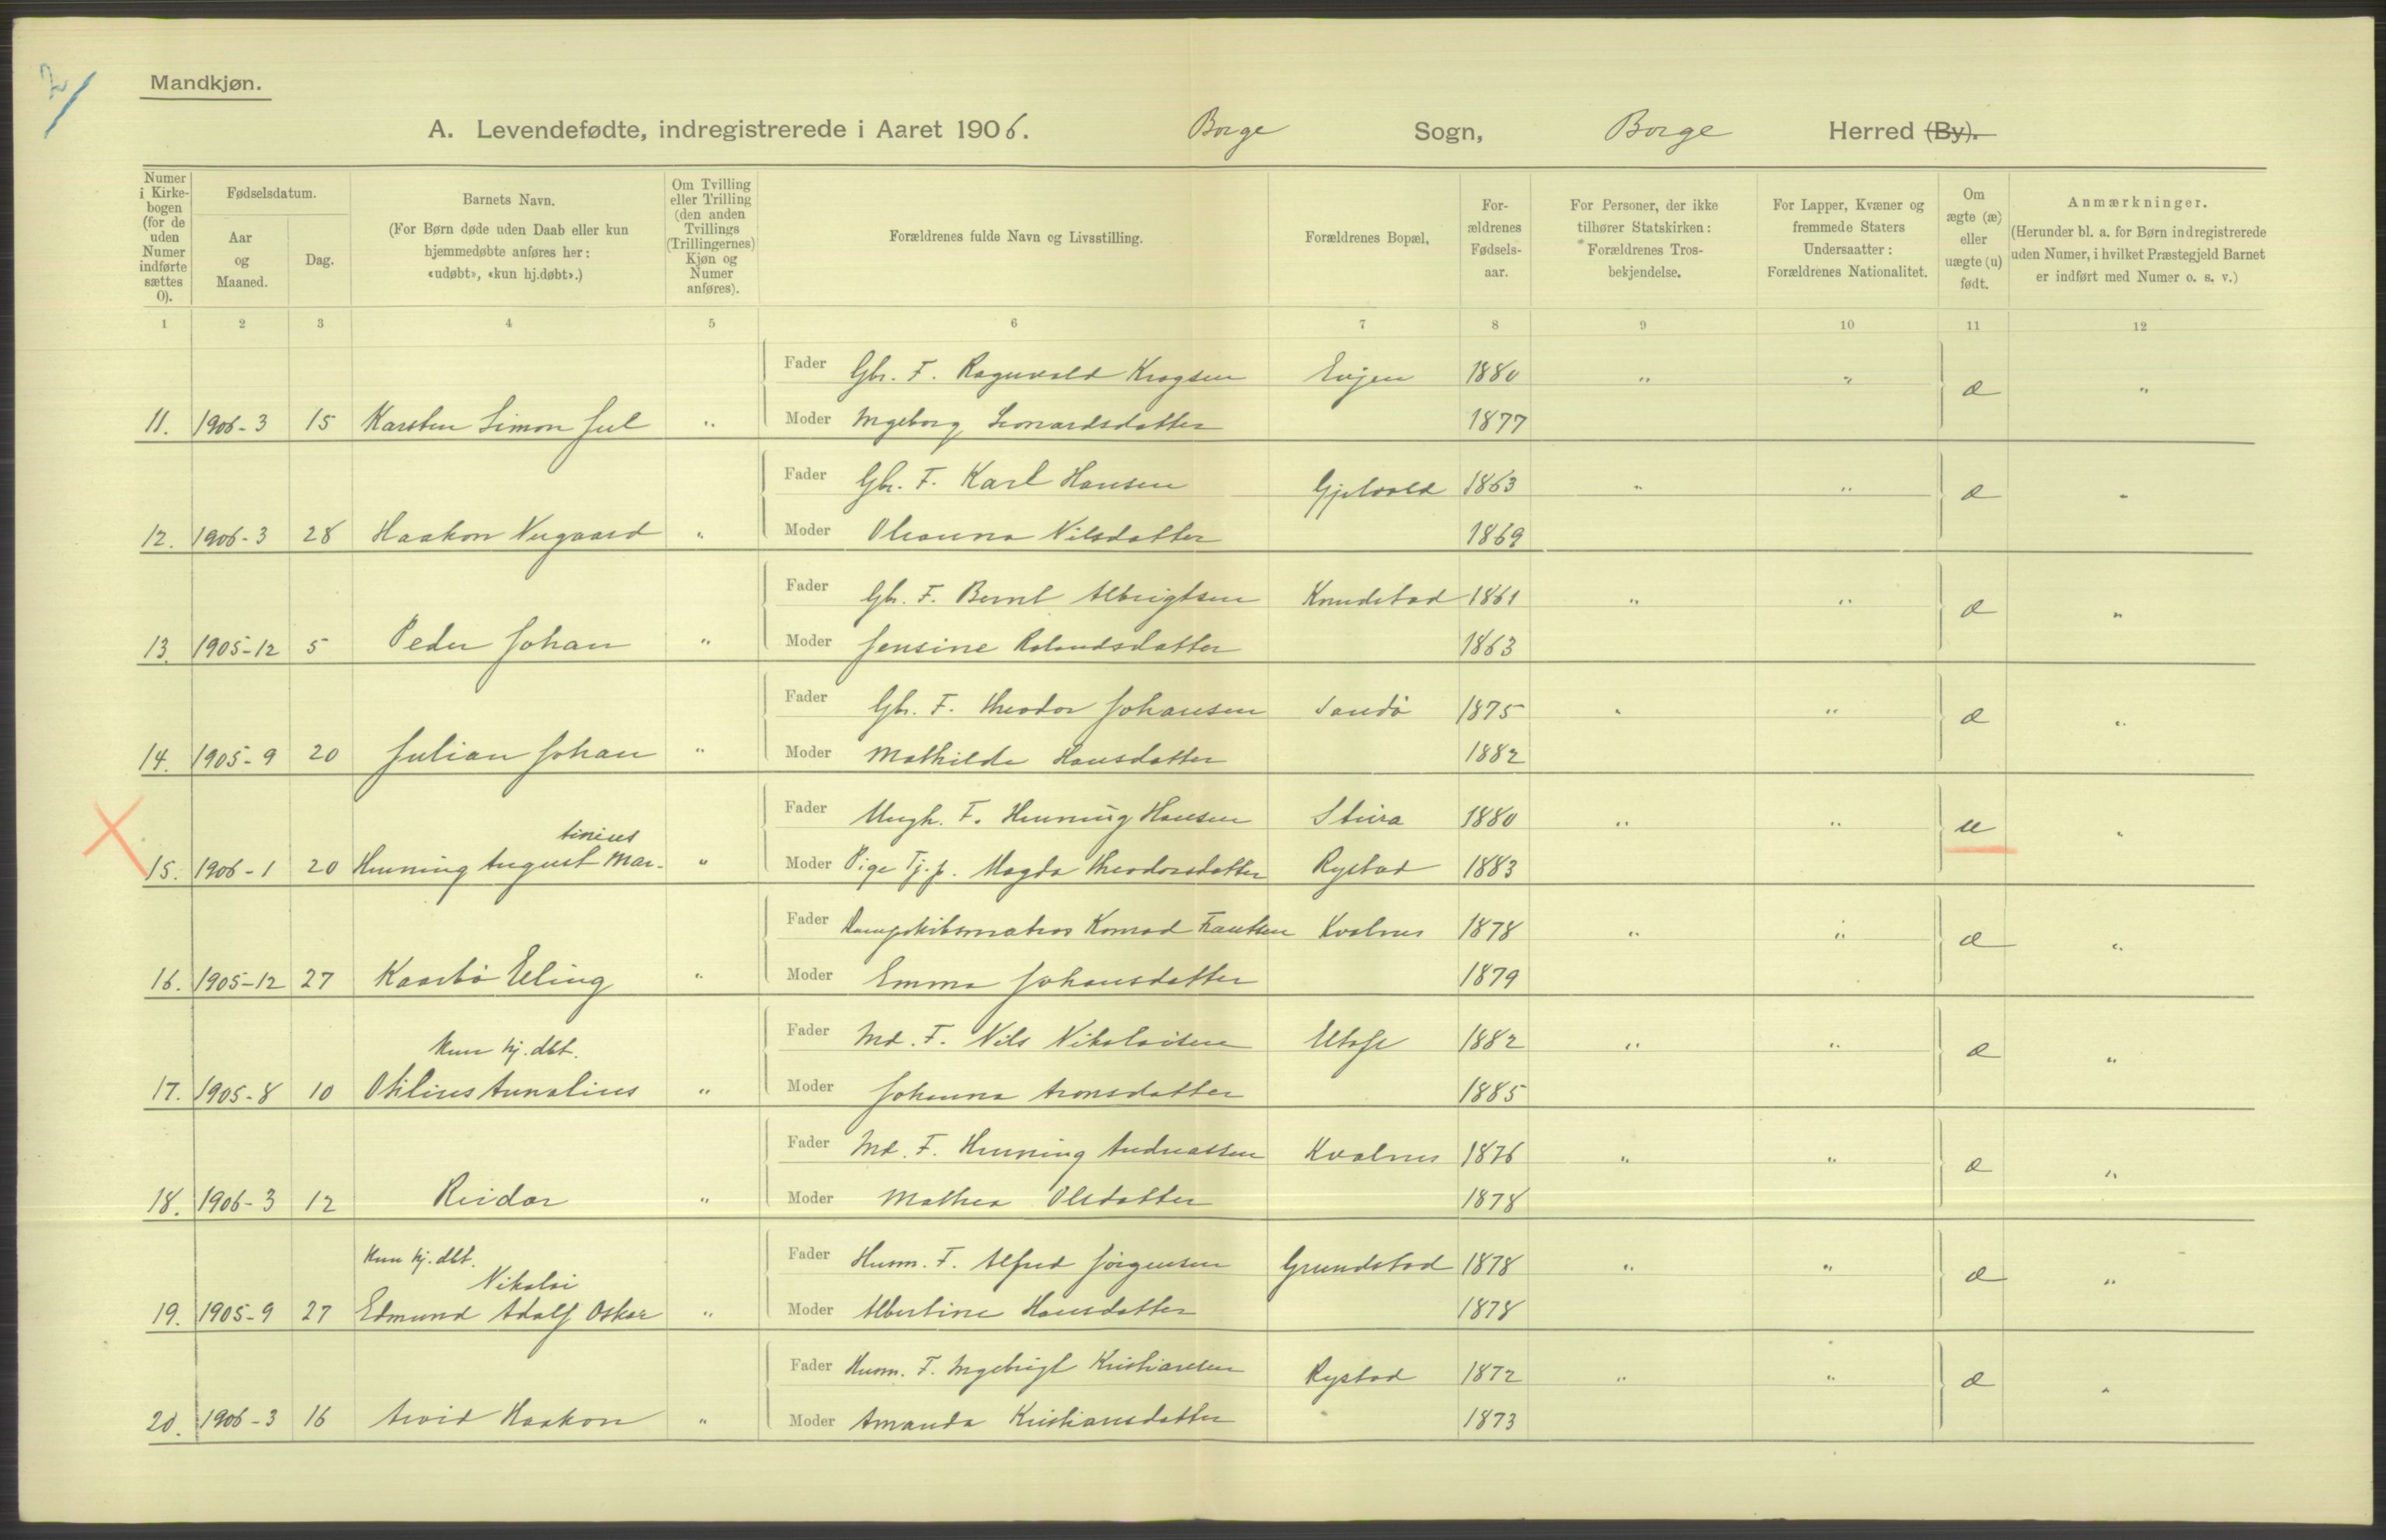 2/
Mandkjøn.
A. Levendefødte, indregistrerede i Aaret 1906. Borge Sogn, Borge Herred (By).
Numer i Kirkebogen (for de uden Numer indførte sættes 0).
Fødselsdatum.
Aar og Maaned.
Dag.
Barnets Navn.
(For Børn døde uden Daab eller kun hjemmedøbte anføres her: «udøbt», «kun hj.døbt».)
Om Tvilling eller Trilling (den anden Tvillings (Trillingernes) Kjøn og Numer anføres).
Forældrenes fulde Navn og Livsstilling.
Forældrenes Bopæl.
Forældrenes Fødselsaar.
For Personer, der ikke tilhører Statskirken: Forældrenes Trosbekjendelse.
For Lapper, Kvæner og fremmede Staters Undersaatter: Forældrenes Nationalitet.
Om ægte (æ) eller uægte (u) født.
Anmærkninger.
(Herunder bl. a. for Børn indregistrerede uden Numer, i hvilket Præstegjeld Barnet er indført med Numer o. s. v.)
1 2 3 4 5 6 7 8 9 10 11 12
Fader Gbr. F. Ragnvald Krogsen Evjen 1880 " " æ "
11. 1906-3 15 Karsten Simon Jul " Moder Ingeborg Leonardsdatter 1877
Fader Gbr. F. Karl Hansen Gjelvold 1863 " " æ "
12. 1906-3 28 Haakon Nygaard " Moder Oleanna Nilsdatter 1869
Fader Gbr. F. Bernt Albrigtsen Knudstad 1861 " " æ "
13. 1905-12 5 Peder Johan " Moder Jensine Rolandsdatter 1863
Fader Gbr. F. Theodor Johansen Sandö 1875 " " æ "
14. 1905-9 20 Julian Johan " Moder Mathilde Hansdatter 1882
Fader Ungk. F. Henning Hansen Stiira 1880 " " u "
tinius
15. 1906-1 20 Henning August Mar- " Moder Pige Tj.p. Magda Theodorsdatter Rystad 1883
Fader Dampskibsmatros Konrad Frantsen Kvalnes 1878 " " æ "
16. 1905-12 27 Kaarbö Elling " Moder Emma Johansdatter 1879
Fader Md. F. Nils Nikolaisen 1882 " " æ "
Kun hj. dbt.
17. 1905-8 10 Otilius Annalius " Moder Johanna Aronsdatter 1885
Fader Md. F. Henning Andreassen Kvalnes 1876 " " æ "
18. 1906-3 12 Reidar " Moder Mathea Olsdatter 1878
Fader Husm. F. Alfred Jörgensen Grundstad 1878 " " æ "
Kun hj. dbt.
Nikolai
19. 1905-9 27 Edmund Adolf Oskar " Moder Albertine Hansdatter 1878
Fader Husm. F. Ingebrigt Kristiansen Rystad 1872 " " æ "
20. 1906-3 16 Arvid Haakon " Moder Amanda Kristiansdatter 1873